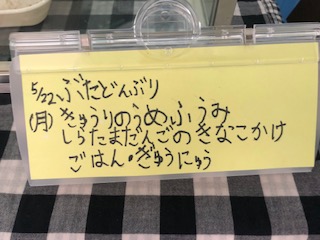 5/22 ぶたどんぶり
(月) きゅうりのうめふうみ
しらたまだんごのきなこかけ
ごはん・ぎゅうにゅう